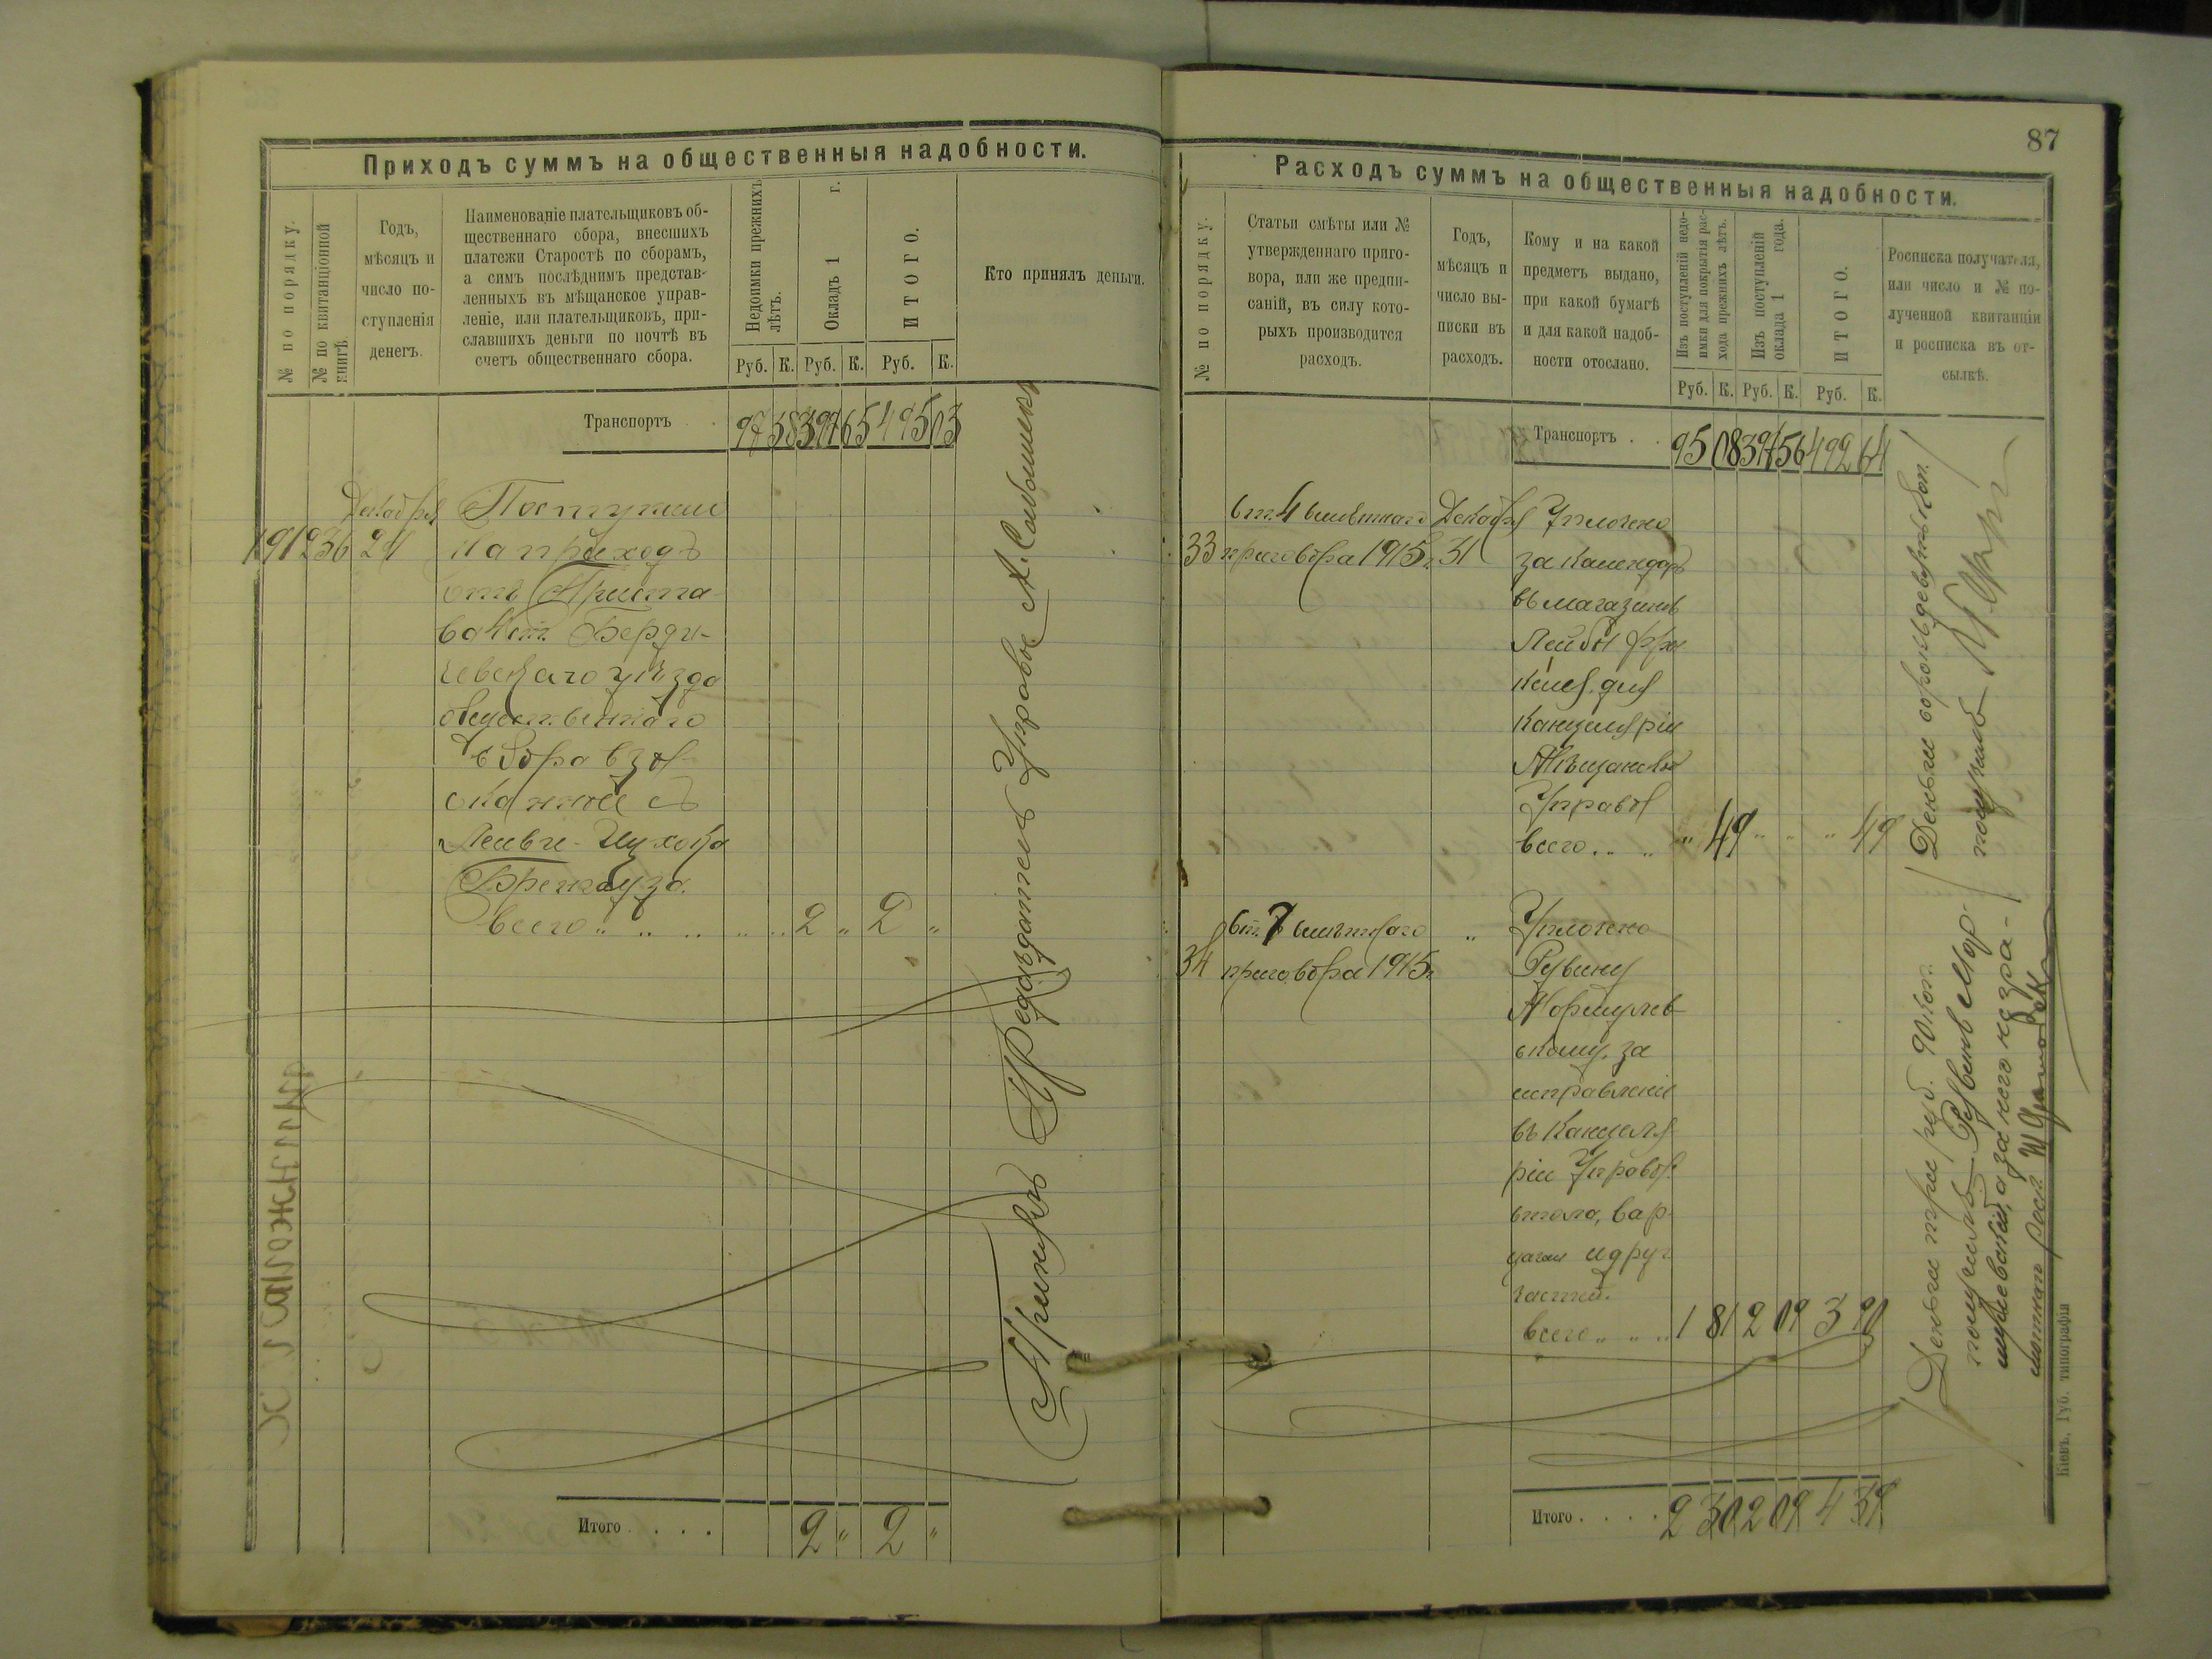 87
Приходъ суммъ на общественныя надобности.
№ по порядку.
№ по квитанціонной
книгѣ
Годъ,
мѣсяцъ и
число по-
ступленія
денегъ.
Наименованіе плательщиковъ об-
щественнаго сбора, внесшихъ
платежи Старостѣ по сборамъ,
а симъ послѣднимъ представ-
ленныхъ въ мѣщанское управ-
леніе, или плательщиковъ, при-
славшихъ деньги по почтѣ въ
счетъ общественнаго сбора.
Недоимки прежнихъ
лѣтъ.
Окладъ 1 г.
ИТОГО.
Кто принялъ деньги.
Руб. К. Руб. К. Руб. К.
Транспортъ 97 38 397 65 495 03
Декабря Поступили
191 236 24 на приходъ
отъ Приста-
ва ст. Берди-
чевскаго уѣзда
общественнаго
сбора взы-
сканные съ
Лейви-Ицхока
всего „ „ „ „ „ 2 „ 2 „
Принялъ Предсѣдатель Управы
Итого . . . . 2 „ 2 „
Расходъ суммъ на общественныя надобности.
№ по порядку.
Статьи смѣты или №
утвержденнаго приго-
вора, или же предпи-
саній, въ силу кото-
рыхъ производится
расходъ.
Годъ,
мѣсяцъ и
число вы-
писки въ
расходъ.
Кому и на какой
предметъ выдано,
при какой бумагѣ
и для какой надоб-
ности отослано.
Изъ поступленій недо-
имки для покрытія рас-
хода прежнихъ лѣтъ.
Изъ поступленій
оклада 1 года.
ИТОГО.
Росписка получателя,
или число и № по-
лученной квитанціи
и росписка въ от-
сылкѣ.
Руб. К. Руб. К. Руб. К.
Транспортъ . . 95 08 397 56 492 64
ст. 4 смѣтнаго Декабря Уплочено
33 приговора 1915 г. 31 за календарь
въ магазинѣ
Лейбы
для
канцеляріи
Мѣщанской
Управы
всего . „ „ „ 49 „ „ „ 49
Деньги сорокъ девять коп.
получилъ
ст. 7 смѣтнаго „ Уплочено
34 приговора 1915 г. Рувину
скому за
исправленіе
въ Канцеля-
ріи Управы
стола, вар-
цаган и друг.
частей.
всего „ „ „ 1 81 2 09 3 90
Деньги три руб. 90 коп.
получилъ Рувинъ Мор-
а за него негра-
мотнаго росп.
Итого . . . . 2 30 2 09 4 39
Кіевъ, Губ. типографія